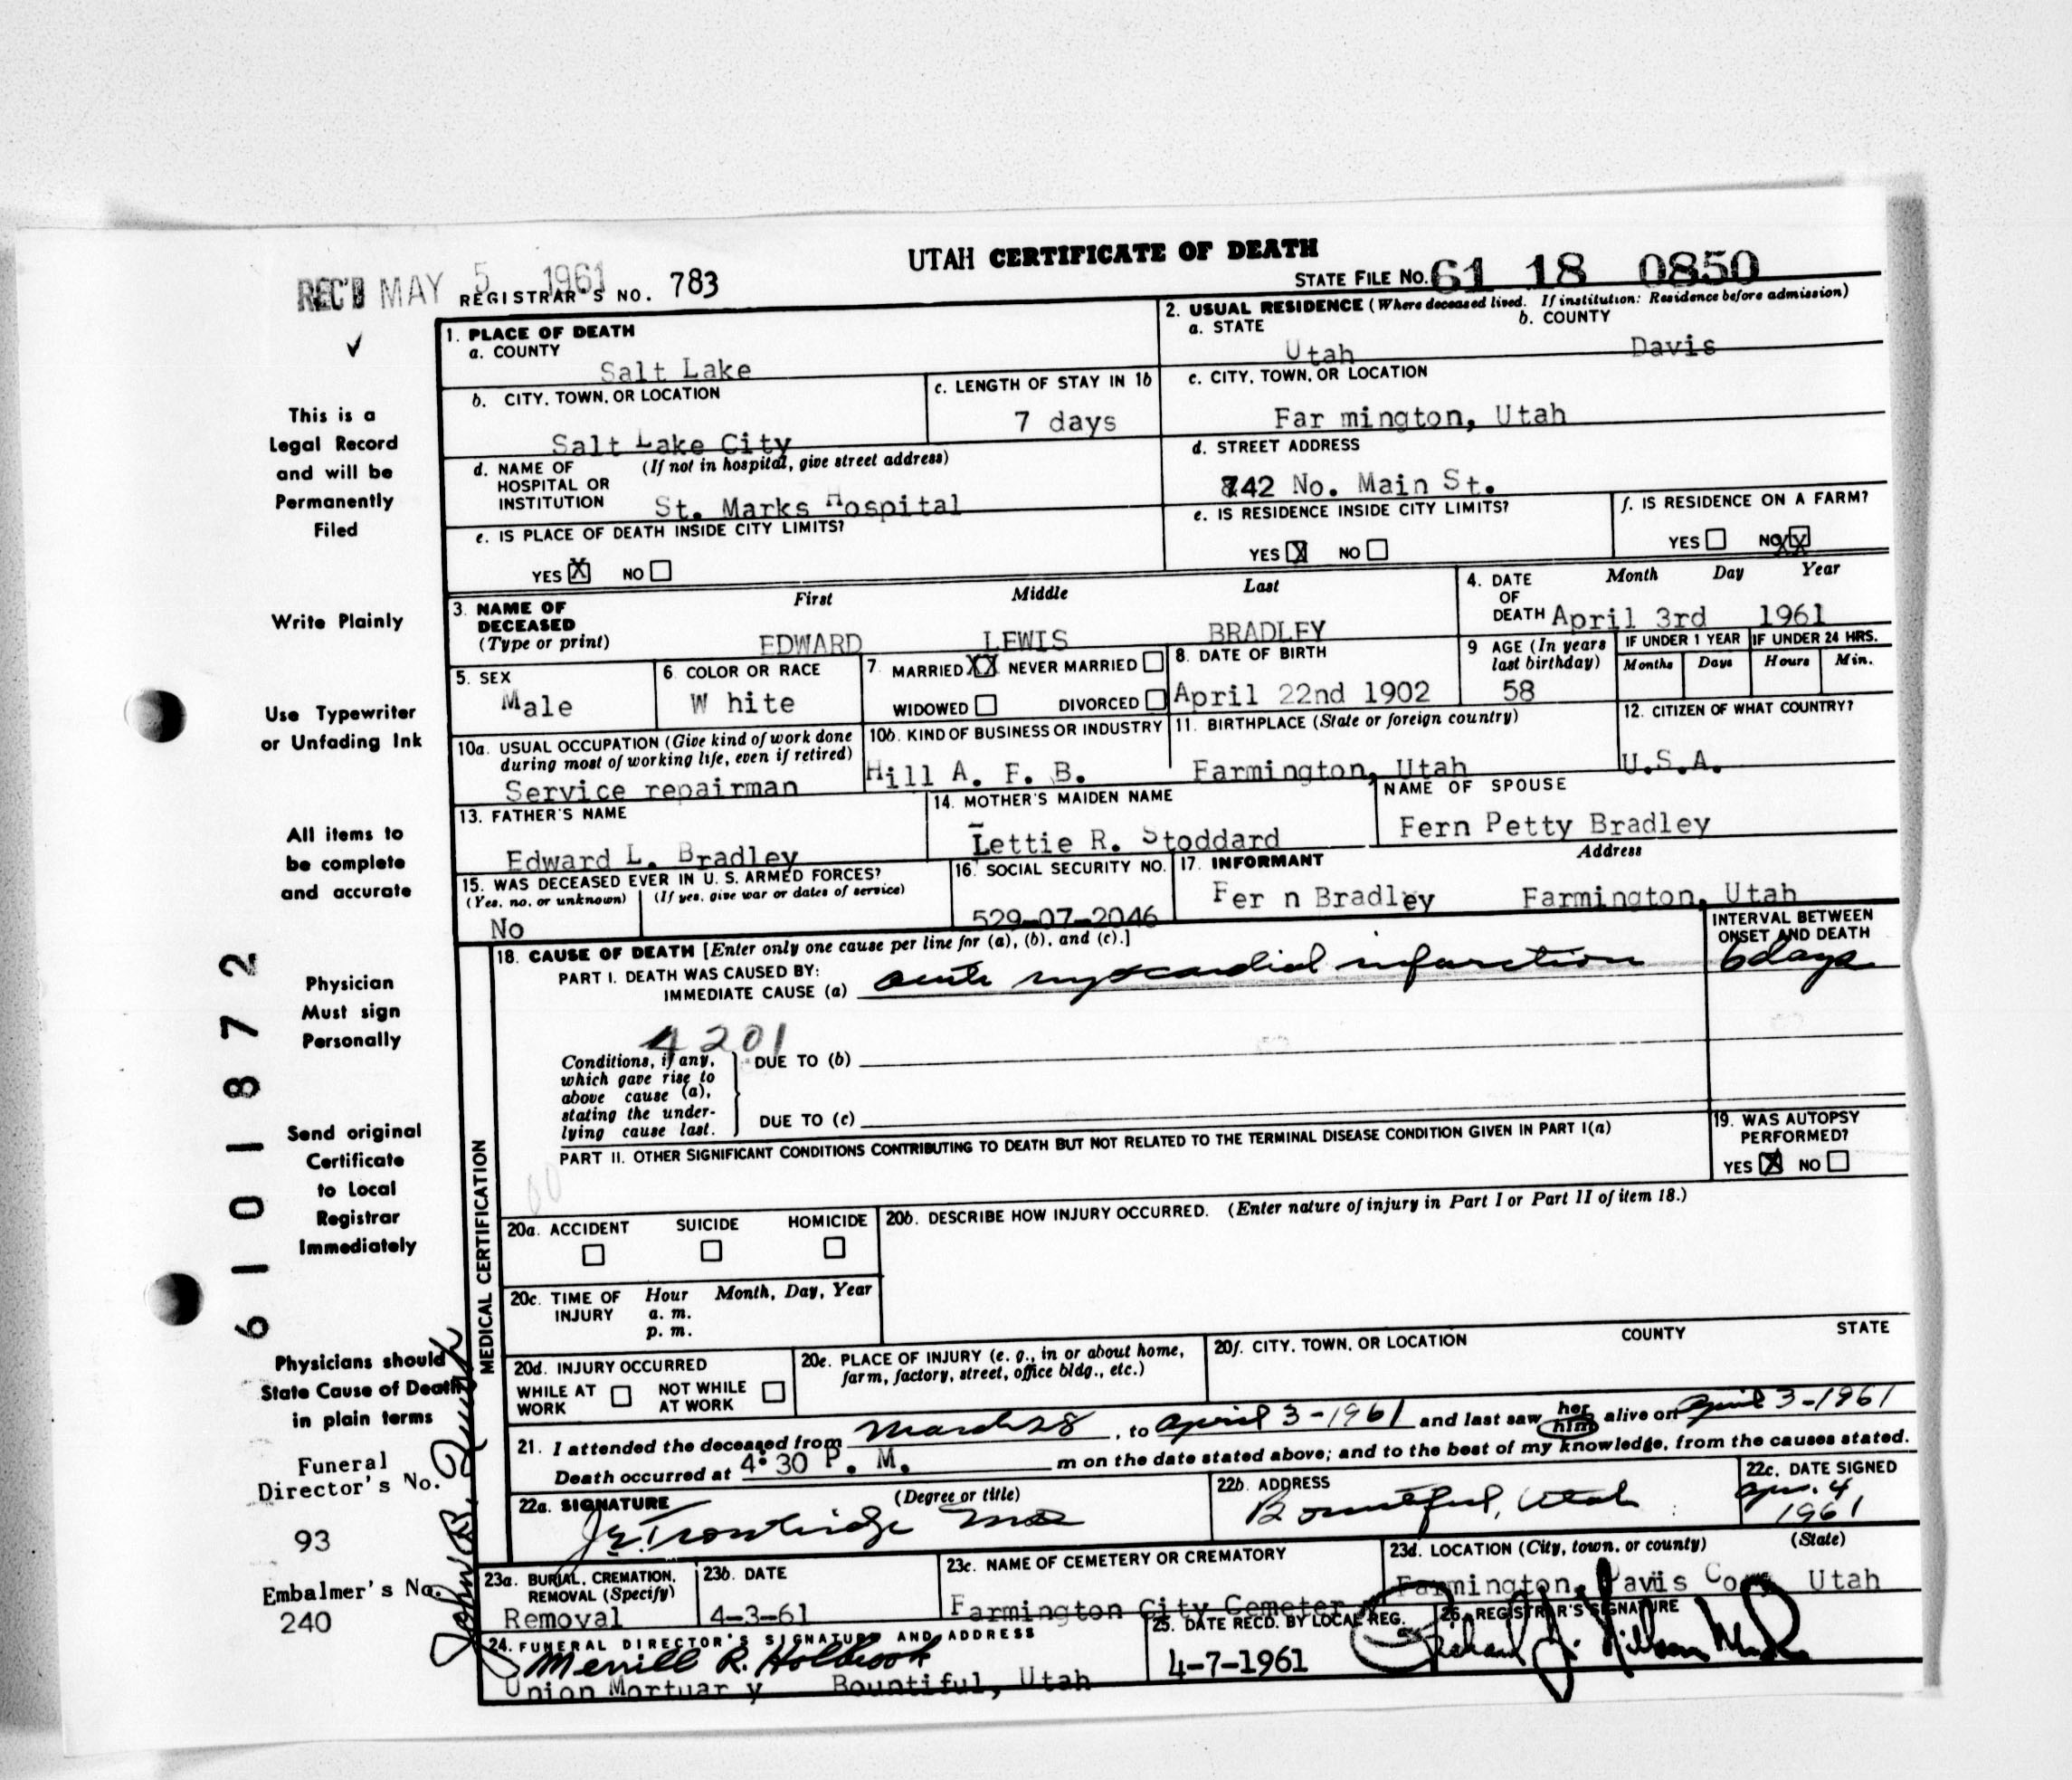 UTAH CERTIFICATE OF DEATH
REC'D MAY 5 1961 REGISTRAR'S NO. 783
STATE FILE NO. 61 18 0850
1. PLACE OF DEATH
a. COUNTY
Salt Lake
b. CITY, TOWN, OR LOCATION
Salt Lake City
c. LENGTH OF STAY IN 1b
7 days
d. NAME OF HOSPITAL OR INSTITUTION (If not in hospital, give street address)
St. Marks Hospital
e. IS PLACE OF DEATH INSIDE CITY LIMITS?
YES X NO
2. USUAL RESIDENCE (Where deceased lived. If institution: Residence before admission)
a. STATE
Utah
b. COUNTY
Davis
c. CITY, TOWN, OR LOCATION
Far mington, Utah
d. STREET ADDRESS
742 No. Main St.
e. IS RESIDENCE INSIDE CITY LIMITS?
YES X NO
f. IS RESIDENCE ON A FARM?
YES NO XX
3. NAME OF DECEASED (Type or print)
First Middle Last
EDWARD LEWIS BRADLEY
4. DATE OF DEATH Month Day Year
April 3rd 1961
5. SEX
Male
6. COLOR OR RACE
W hite
7. MARRIED XX NEVER MARRIED
WIDOWED DIVORCED
8. DATE OF BIRTH
April 22nd 1902
9 AGE (In years last birthday)
58
IF UNDER 1 YEAR IF UNDER 24 HRS.
Months Days Hours Min.
10a. USUAL OCCUPATION (Give kind of work done during most of working life, even if retired)
Service repairman
10b. KIND OF BUSINESS OR INDUSTRY
Hill A. F. B.
11. BIRTHPLACE (State or foreign country)
Farmington, Utah
12. CITIZEN OF WHAT COUNTRY?
U.S.A.
13. FATHER'S NAME
Edward L. Bradley
14. MOTHER'S MAIDEN NAME
Lettie R. Stoddard
NAME OF SPOUSE
Fern Petty Bradley
15. WAS DECEASED EVER IN U. S. ARMED FORCES?
(Yes, no, or unknown) (If yes, give war or dates of service)
No
16. SOCIAL SECURITY NO.
529-07-2046
17. INFORMANT Address
Fer n Bradley Farmington, Utah
18. CAUSE OF DEATH [Enter only one cause per line for (a), (b), and (c).]
PART I. DEATH WAS CAUSED BY:
IMMEDIATE CAUSE (a) acute myocardial infarction
INTERVAL BETWEEN ONSET AND DEATH
6 days
4201
Conditions, if any, which gave rise to above cause (a), stating the under-lying cause last.
DUE TO (b)
DUE TO (c)
PART II. OTHER SIGNIFICANT CONDITIONS CONTRIBUTING TO DEATH BUT NOT RELATED TO THE TERMINAL DISEASE CONDITION GIVEN IN PART I(a)
19. WAS AUTOPSY PERFORMED?
YES X NO
20a. ACCIDENT SUICIDE HOMICIDE
20b. DESCRIBE HOW INJURY OCCURRED. (Enter nature of injury in Part I or Part II of item 18.)
20c. TIME OF INJURY Hour Month, Day, Year
a. m.
p. m.
20d. INJURY OCCURRED
WHILE AT WORK NOT WHILE AT WORK
20e. PLACE OF INJURY (e. g., in or about home, farm, factory, street, office bldg., etc.)
20f. CITY, TOWN, OR LOCATION COUNTY STATE
21. I attended the deceased from March 28, to april 3-1961 and last saw her him alive on april 3-1961
Death occurred at 4:30 P. M. m on the date stated above; and to the best of my knowledge, from the causes stated.
22a. SIGNATURE (Degree or title)
J E Trowbridge MD
22b. ADDRESS
Bountiful, Utah
22c. DATE SIGNED
Apr. 4
1961
23a. BURIAL, CREMATION, REMOVAL (Specify)
Removal
23b. DATE
4-3-61
23c. NAME OF CEMETERY OR CREMATORY
Farmington City Cemeter
23d. LOCATION (City, town, or county) (State)
Farmington, Davis Co Utah
24. FUNERAL DIRECTOR'S SIGNATURE AND ADDRESS
Merrill R. Holbrook
Union Mortuar y Bountiful, Utah
25. DATE RECD. BY LOCAL REG.
4-7-1961
26. REGISTRAR'S SIGNATURE
MEDICAL CERTIFICATION
This is a
Legal Record
and will be
Permanently
Filed
Write Plainly
Use Typewriter
or Unfading Ink
All items to
be complete
and accurate
Physician
Must sign
Personally
Send original
Certificate
to Local
Registrar
Immediately
Physicians should
State Cause of Death
in plain terms
Funeral
Director's No.
93
Embalmer's No.
240
John B.
6101872